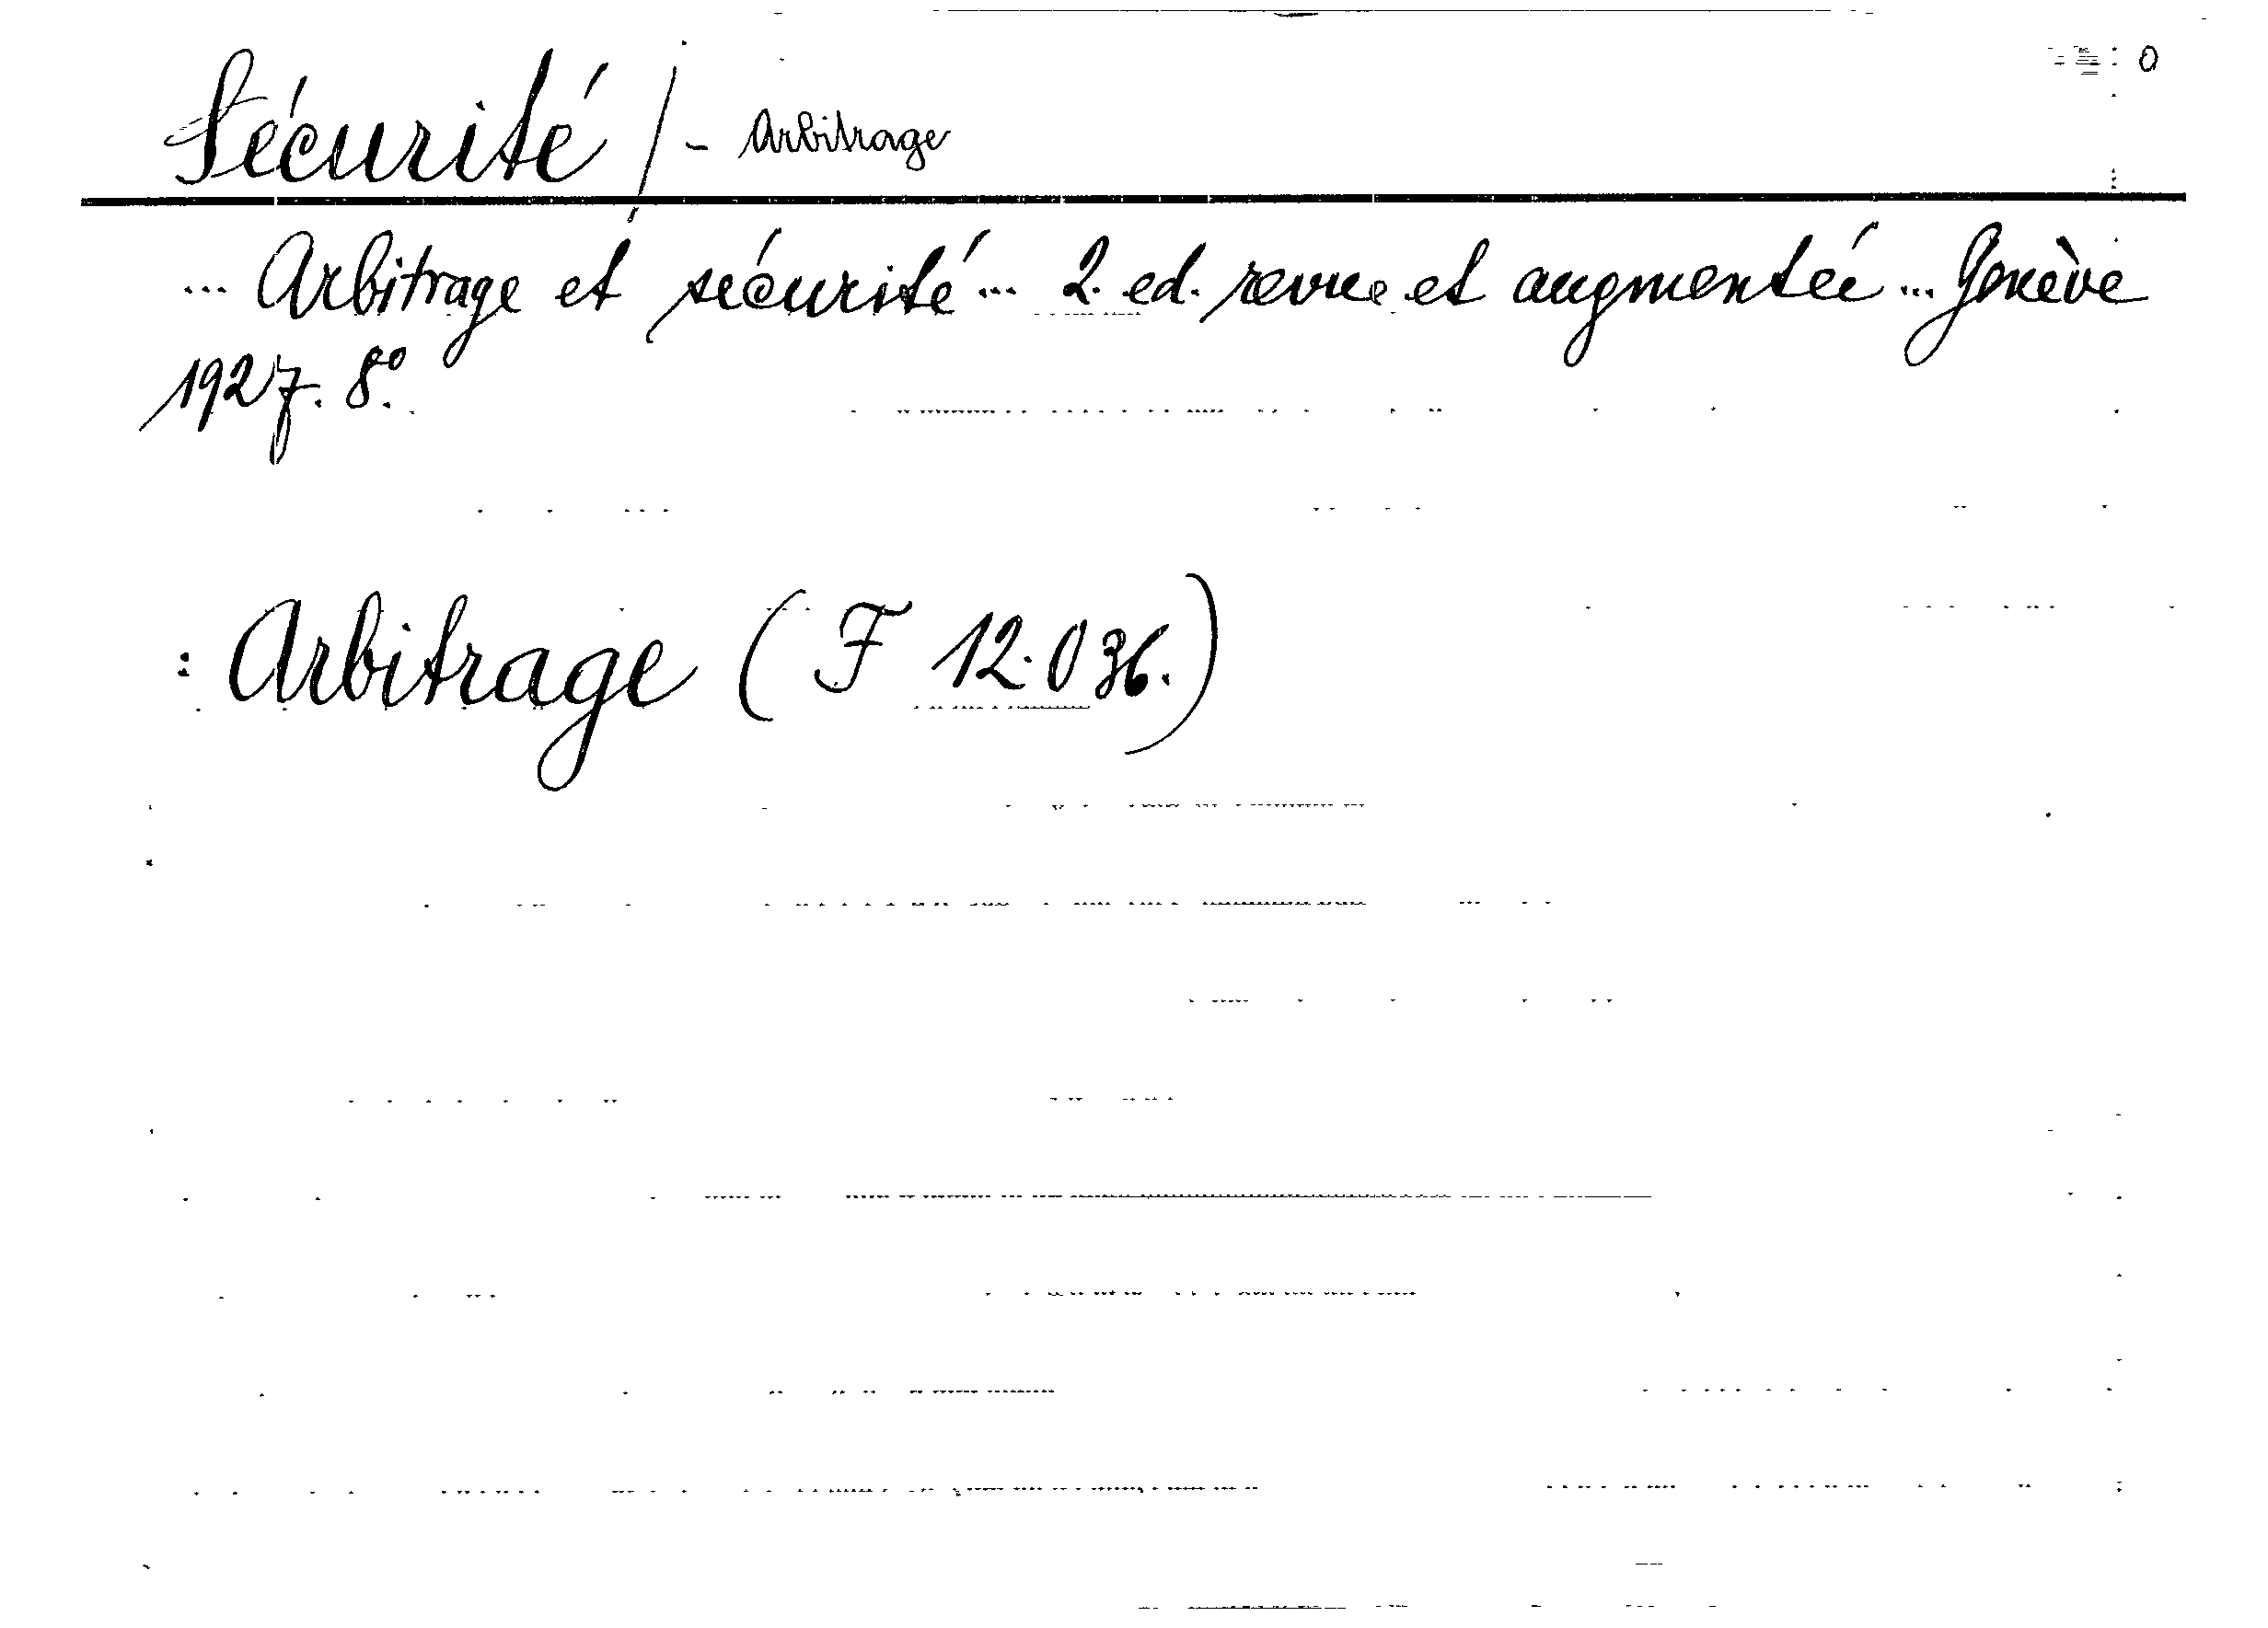 Sécurité / - Arbitrage
... Arbitrage et sécurité ... 2. ed. revue et augmentée ... Genève
1927. 8°.
: Arbitrage (F 12.036.)